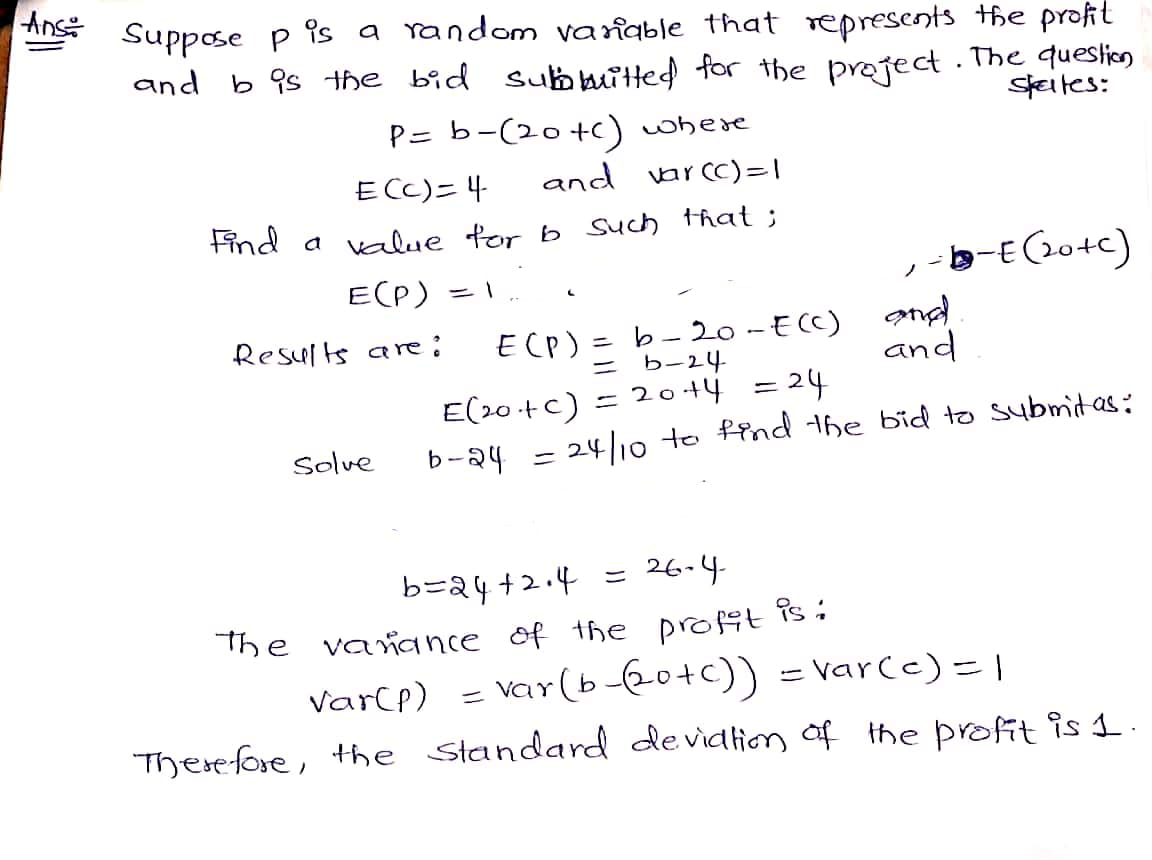 Ans:
Suppose p is a random variable that represents the profit
and b is the bid submitted for the project. The question
states:
P = b-(20+C) where
E(C)=4 and var(C)=1
Find a value for b such that;
E(P) = 1 , -b-E(20+C)
Results are: E(P) = b-20-E(C) and
= b-24 and
E(20+C) = 20+4 = 24
Solve b-24 = 24/10 to find the bid to submit as:
b=24+2.4 = 26.4
The variance of the profit is:
Var(P) = Var(b-(20+C)) = Var(C) = 1
Therefore, the standard deviation of the profit is 1.